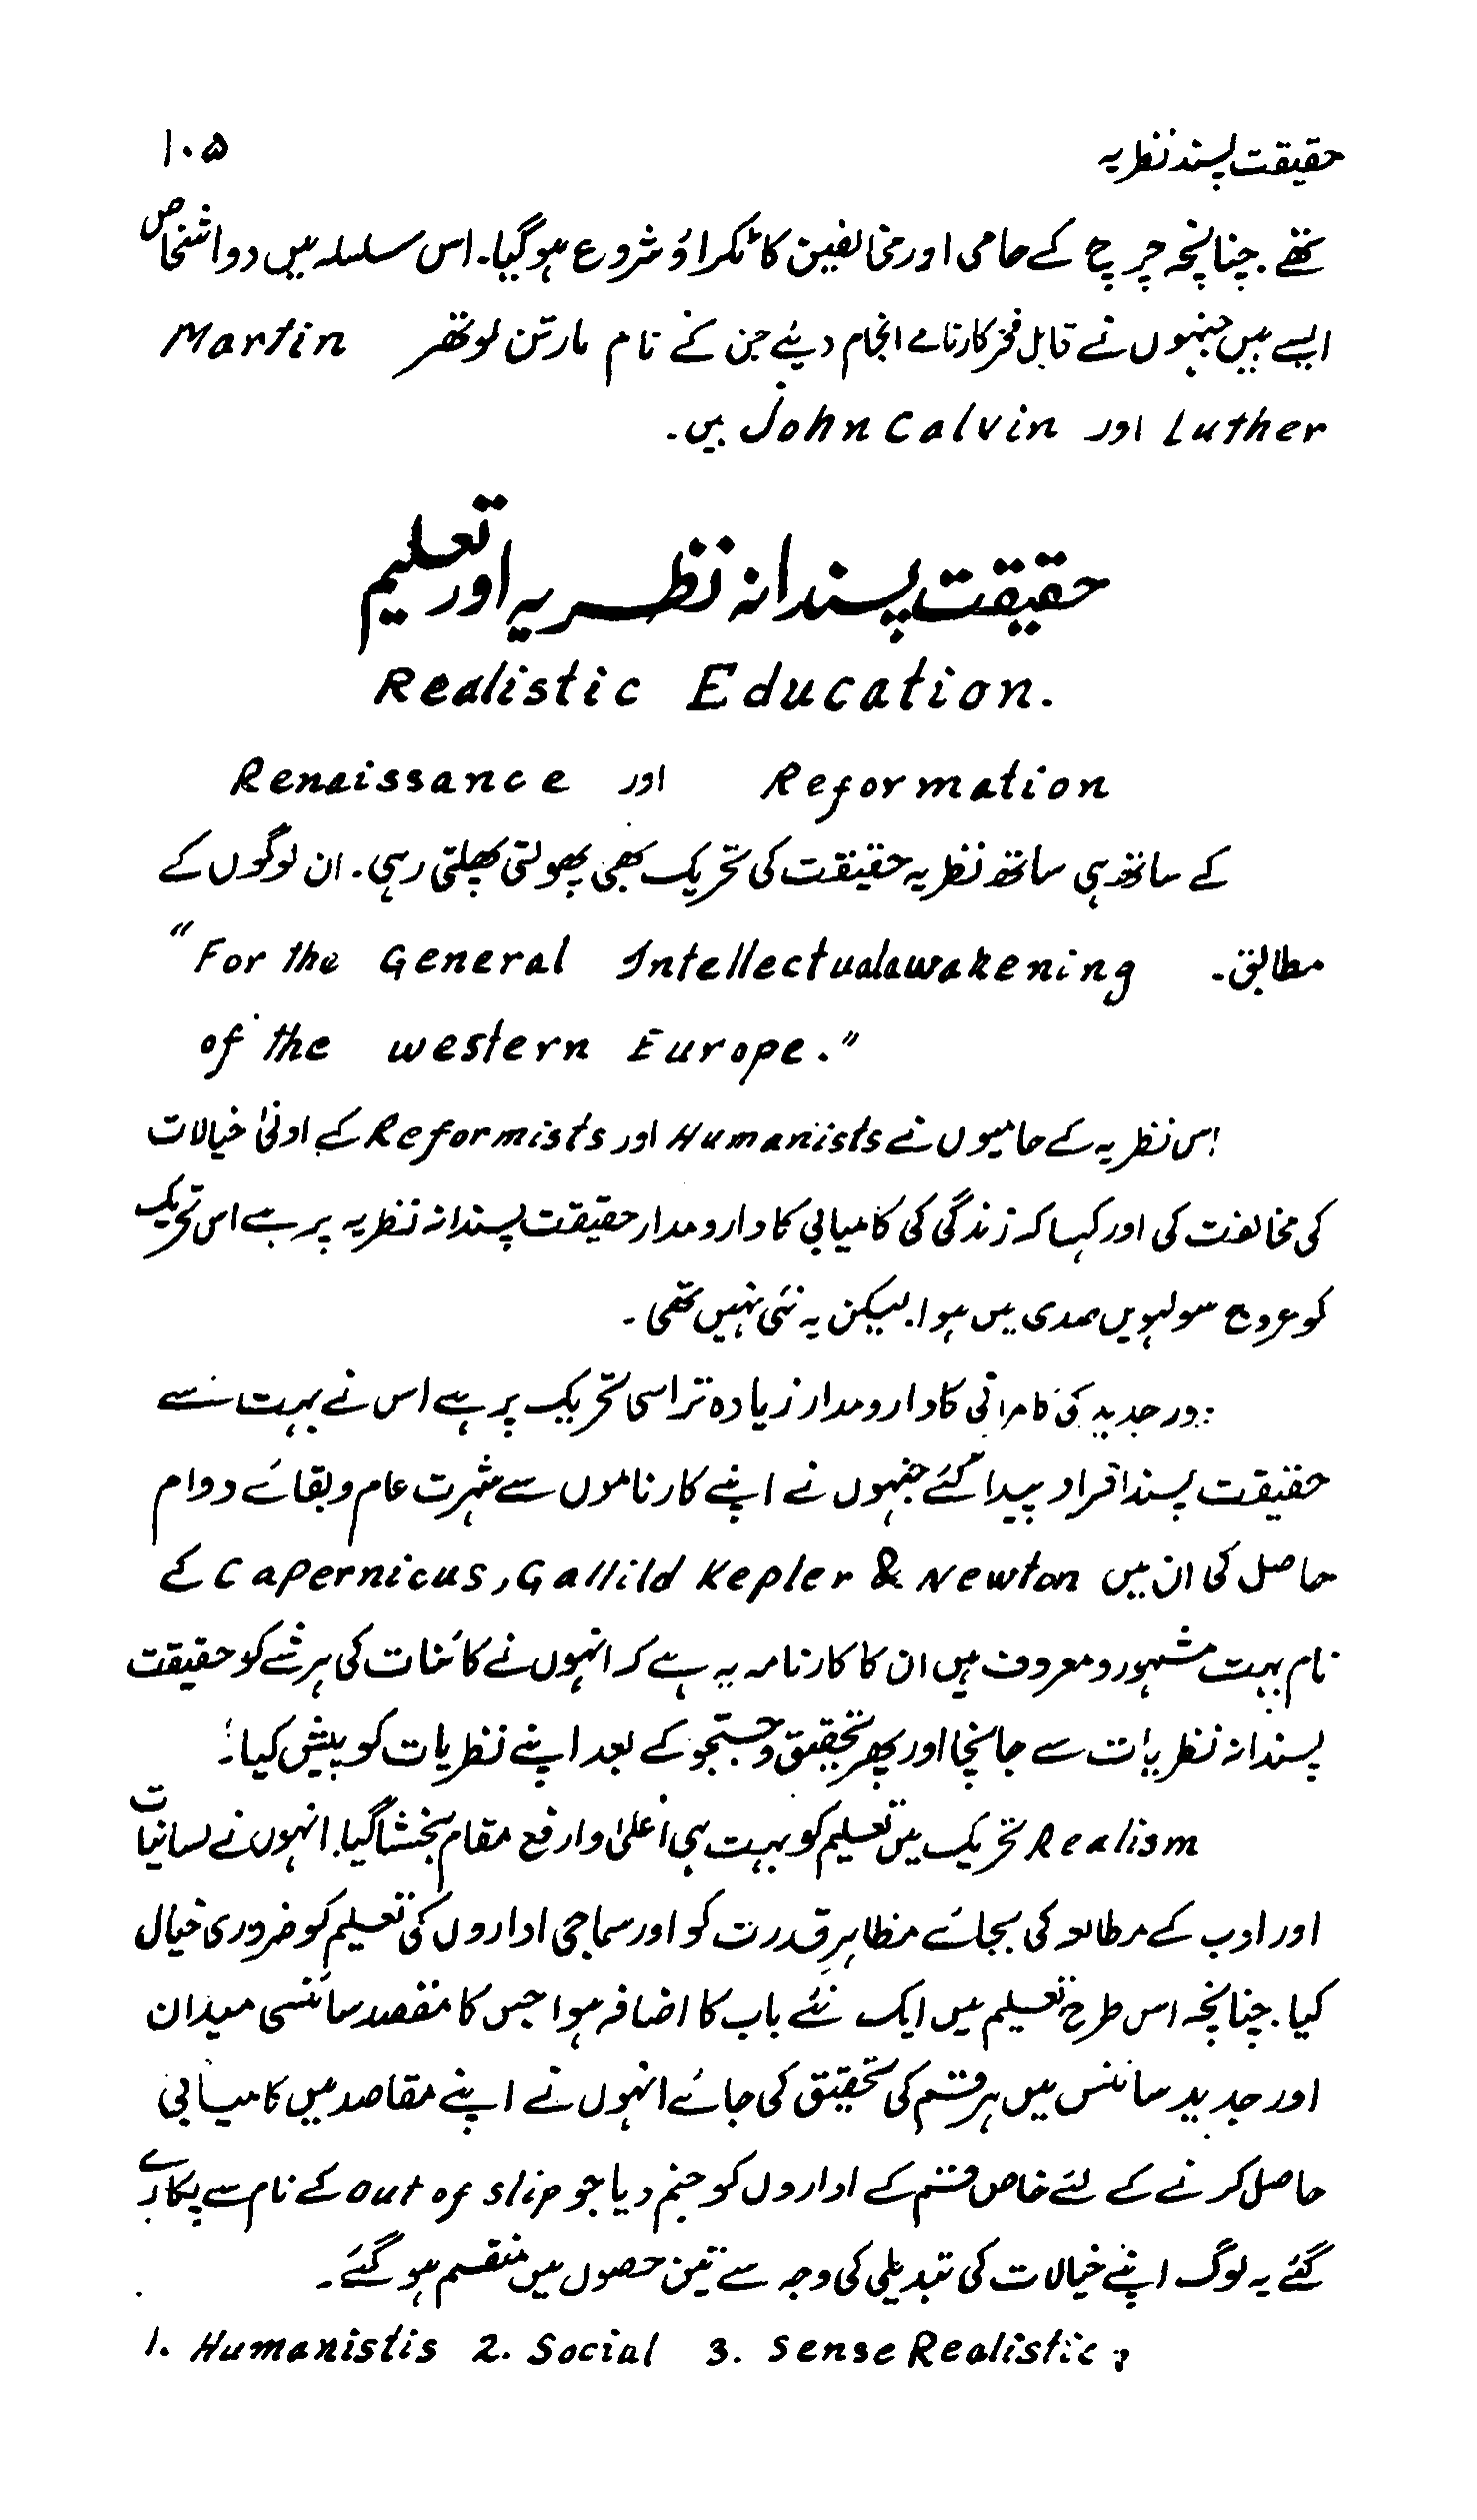 حقیقت پسند نظریہ ۱۰۵
تھے۔ چنانچہ چرچ کے حامی اور مخالفین کا ٹکراؤ شروع ہوگیا۔ اس سلسلہ میں دو اشخاص
ایسے ہیں جنہوں نے قابل فخر کارنامے انجام دیئے جن کے نام مارتن لوتھر Martin
Luther اور John Calvin ہیں۔
حقیقت پسندانہ نظریہ اور تعلیم
Realistic Education.
Renaissance اور Reformation
کے ساتھ ہی ساتھ نظریہ حقیقت کی تحریک بھی پھولتی پھلتی رہی۔ ان لوگوں کے
مطابق۔ "For the General Intellectualawakening
of the western Europe."
اس نظریہ کے حامیوں نے Humanists اور Reformists کے ادنیٰ خیالات
کی مخالفت کی اور کہا کہ زندگی کی کامیابی کا دارومدار حقیقت پسندانہ نظریہ پر ہے اس تحریک
کو عروج سولہویں صدی میں ہوا۔ لیکن یہ نئی نہیں تھی۔
دور جدید کی کامرانی کا دارومدار زیادہ تر اسی تحریک پر ہے اس نے بہت سے
حقیقت پسند افراد پیدا کئے جنہوں نے اپنے کارناموں سے شہرت عام و بقائے دوام
حاصل کی ان میں Capernicus, Gallild Kepler & Newton کے
نام بہت مشہور و معروف ہیں ان کا کارنامہ یہ ہے کہ انہوں نے کائنات کی ہر شے کو حقیقت
پسندانہ نظریات سے جانچا اور پھر تحقیق و جستجو کے بعد اپنے نظریات کو پیش کیا۔
Realism تحریک میں تعلیم کو بہت ہی اعلیٰ و ارفع مقام بخشا گیا۔ انہوں نے لسانیات
اور ادب کے مطالعہ کی بجائے مظاہرِ قدرت کو اور سماجی اداروں کی تعلیم کو ضروری خیال
کیا۔ چنانچہ اس طرح تعلیم میں ایک نئے باب کا اضافہ ہوا جس کا مقصد سائنسی میدان
اور جدید سائنس میں ہر قسم کی تحقیق کی جائے انہوں نے اپنے مقاصد میں کامیابی
حاصل کرنے کے لئے خاص قسم کے اداروں کو جنم دیا جو out of slip کے نام سے پکارے
گئے یہ لوگ اپنے خیالات کی تبدیلی کی وجہ سے تین حصوں میں منقسم ہو گئے۔
1. Humanistis 2. Social 3. Sense Realistic